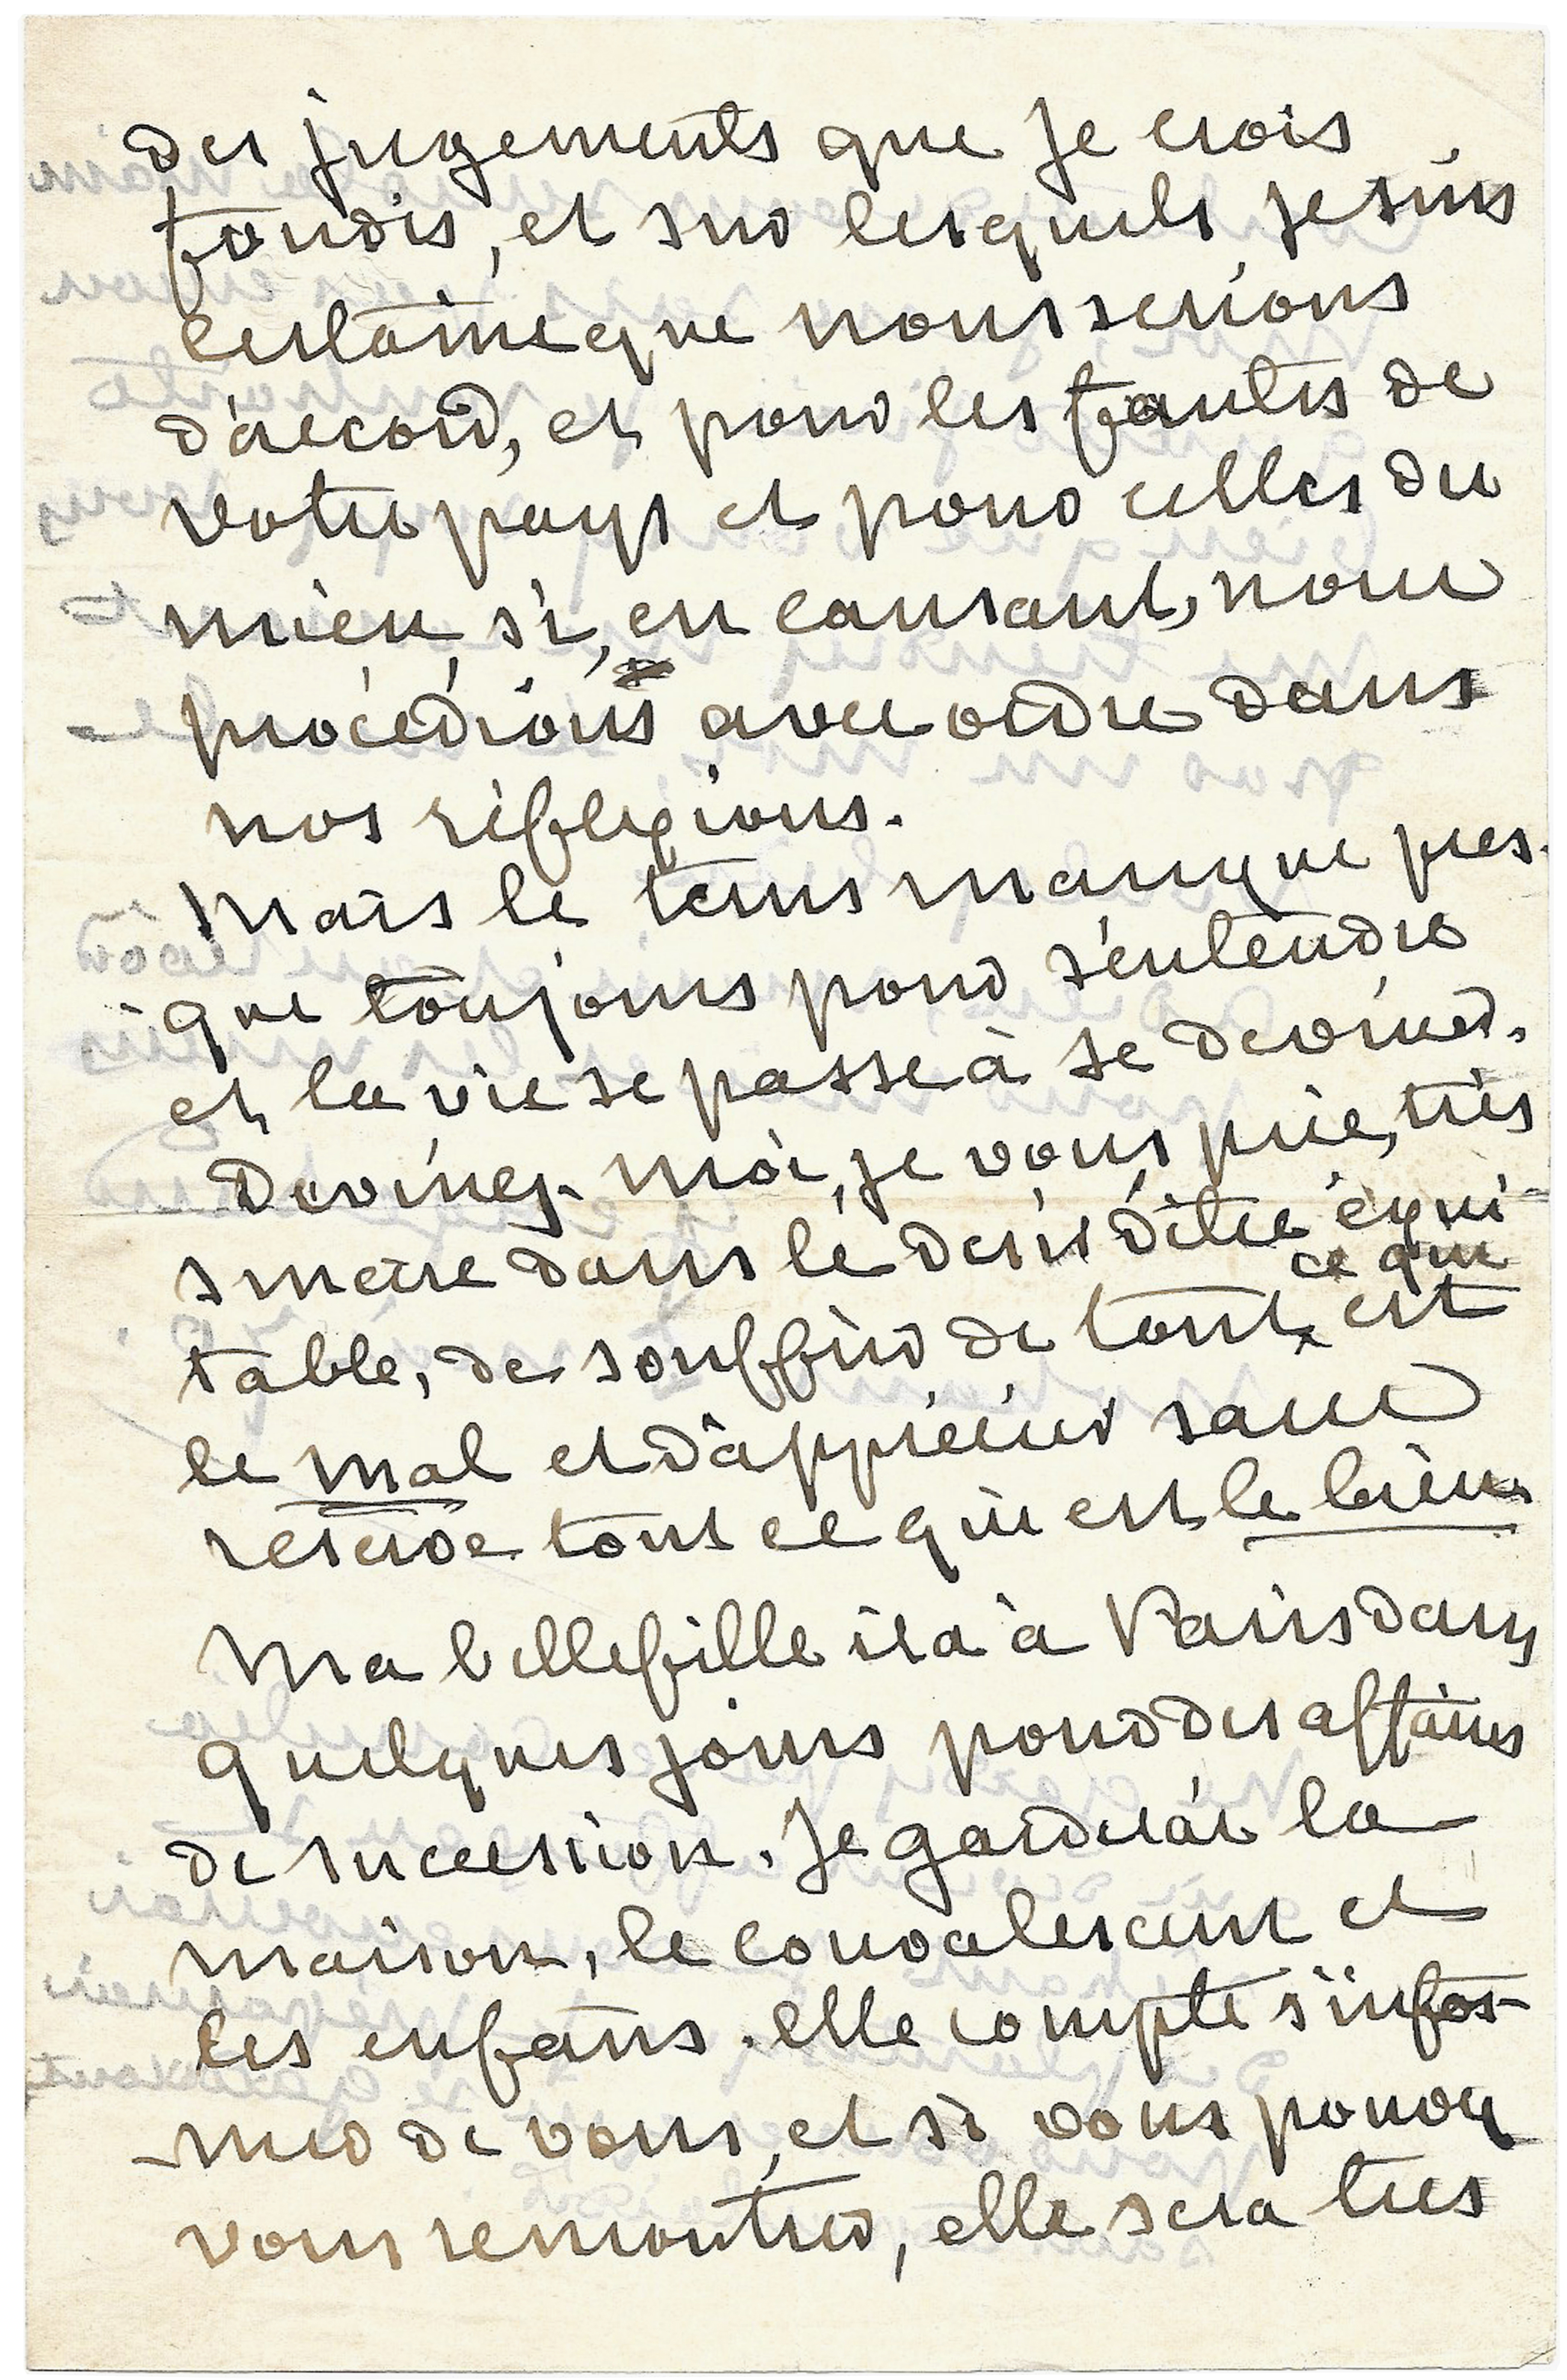 des jugements que je crois
fondés, et sur lesquels je suis
certaine que nous serions
d'accord, et pour les fautes de
votre pays et pour celles du
mien, si, en causant, nous
procédions avec ordre dans
nos réflexions.
Mais le tems manque pres-
que toujours pour s'entendre
et la vie se passe à se deviner.
Devinez-moi, je vous prie, très
sincère dans le désir d'être équi-
ce qui
table, de souffrir de tout est
le mal et d'apprécier sans
réserve tout ce qui est le bien.
Ma bellefille ira à Paris dans
quelques jours pour des affaires
de succession. Je garderai la
maison, le convalescent et
les enfans. elle compte s'infor-
mer de vous, et si vous pouvez
vous remontrer, elle sera très